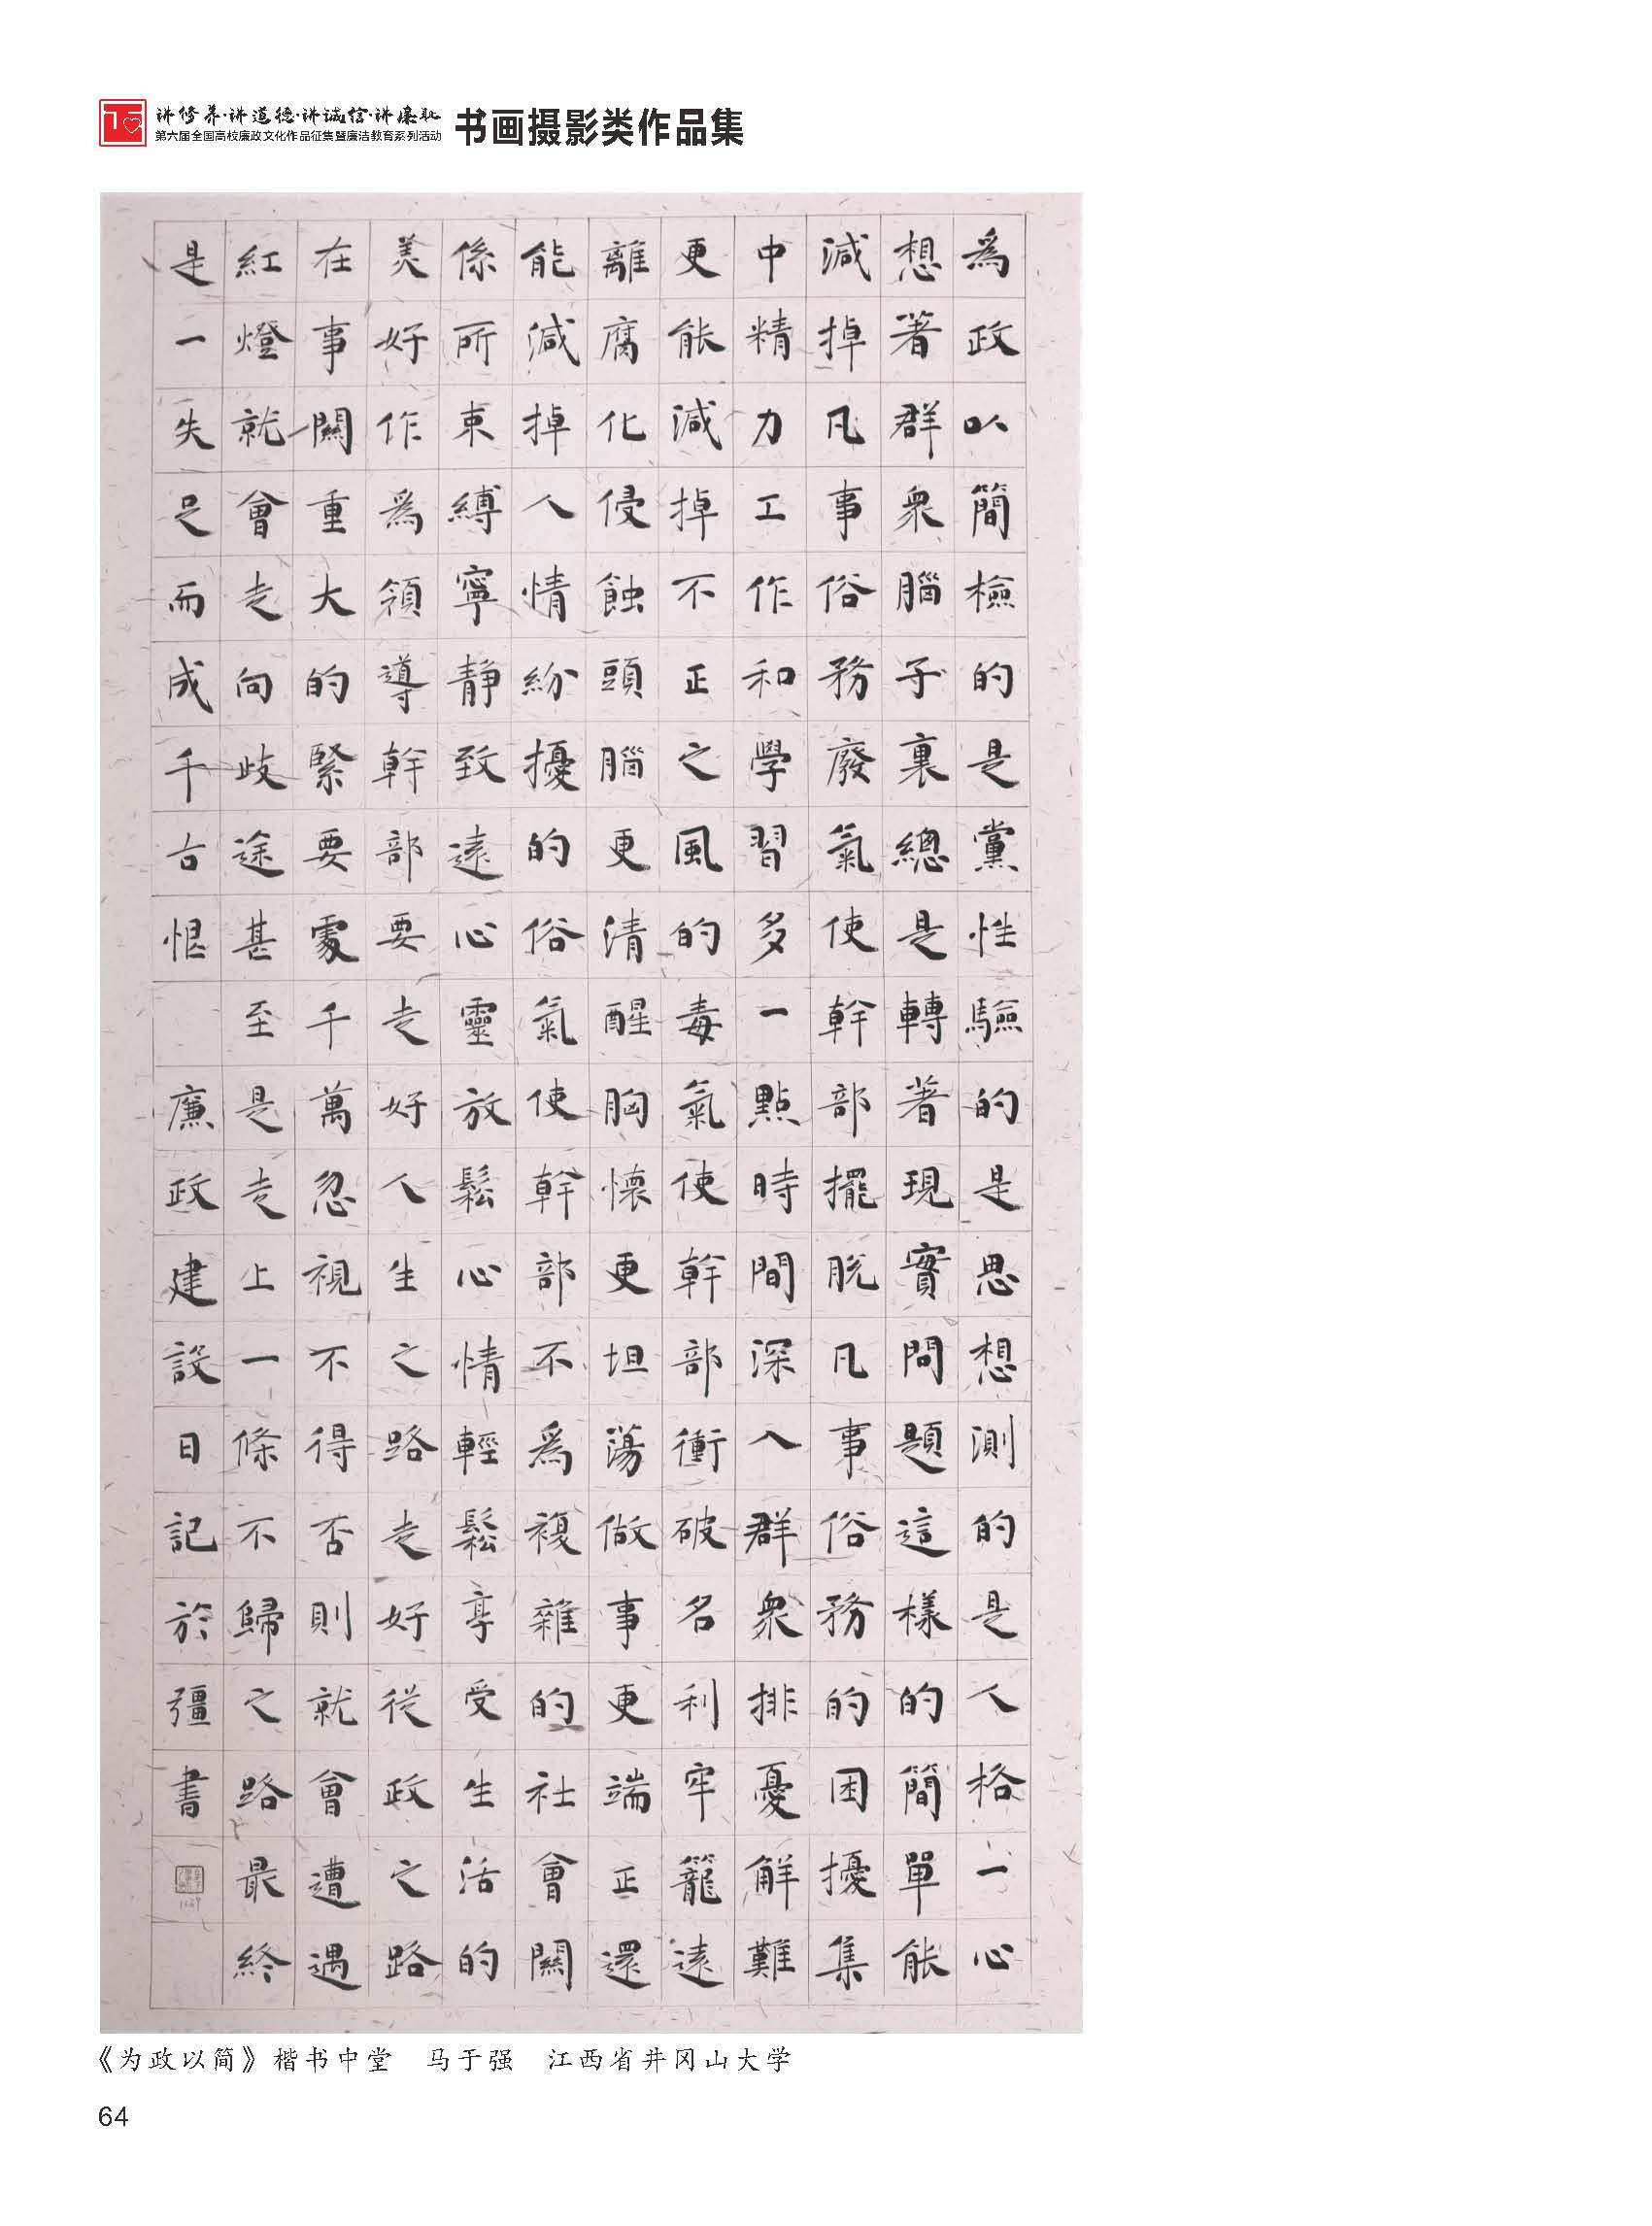 讲修养·讲道德·讲诚信·讲廉耻
第六届全国高校廉政文化作品征集暨廉洁教育系列活动
书画摄影类作品集
爲政以簡檢的是黨性驗的是思想測的是人格一心
想著群衆腦子裏總是轉著現實問題這樣的簡單能
減掉凡事俗務廢氣使幹部擺脱凡事俗務的困擾集
中精力工作和學習多一點時間深入群衆排憂解難
更能減掉不正之風的毒氣使幹部衝破名利牢籠遠
離腐化侵蝕頭腦更清醒胸懷更坦蕩做事更端正還
能減掉人情紛擾的俗氣使幹部不爲複雜的社會關
係所束縛寧靜致遠心靈放鬆心情輕鬆享受生活的
美好作爲領導幹部要走好人生之路走好從政之路
在事關重大的緊要處千萬忽視不得否則就會遭遇
紅燈就會走向歧途甚至是走上一條不歸之路最終
是一失足而成千古恨 廉政建設日記於彊書
《为政以简》楷书中堂 马于强 江西省井冈山大学
64